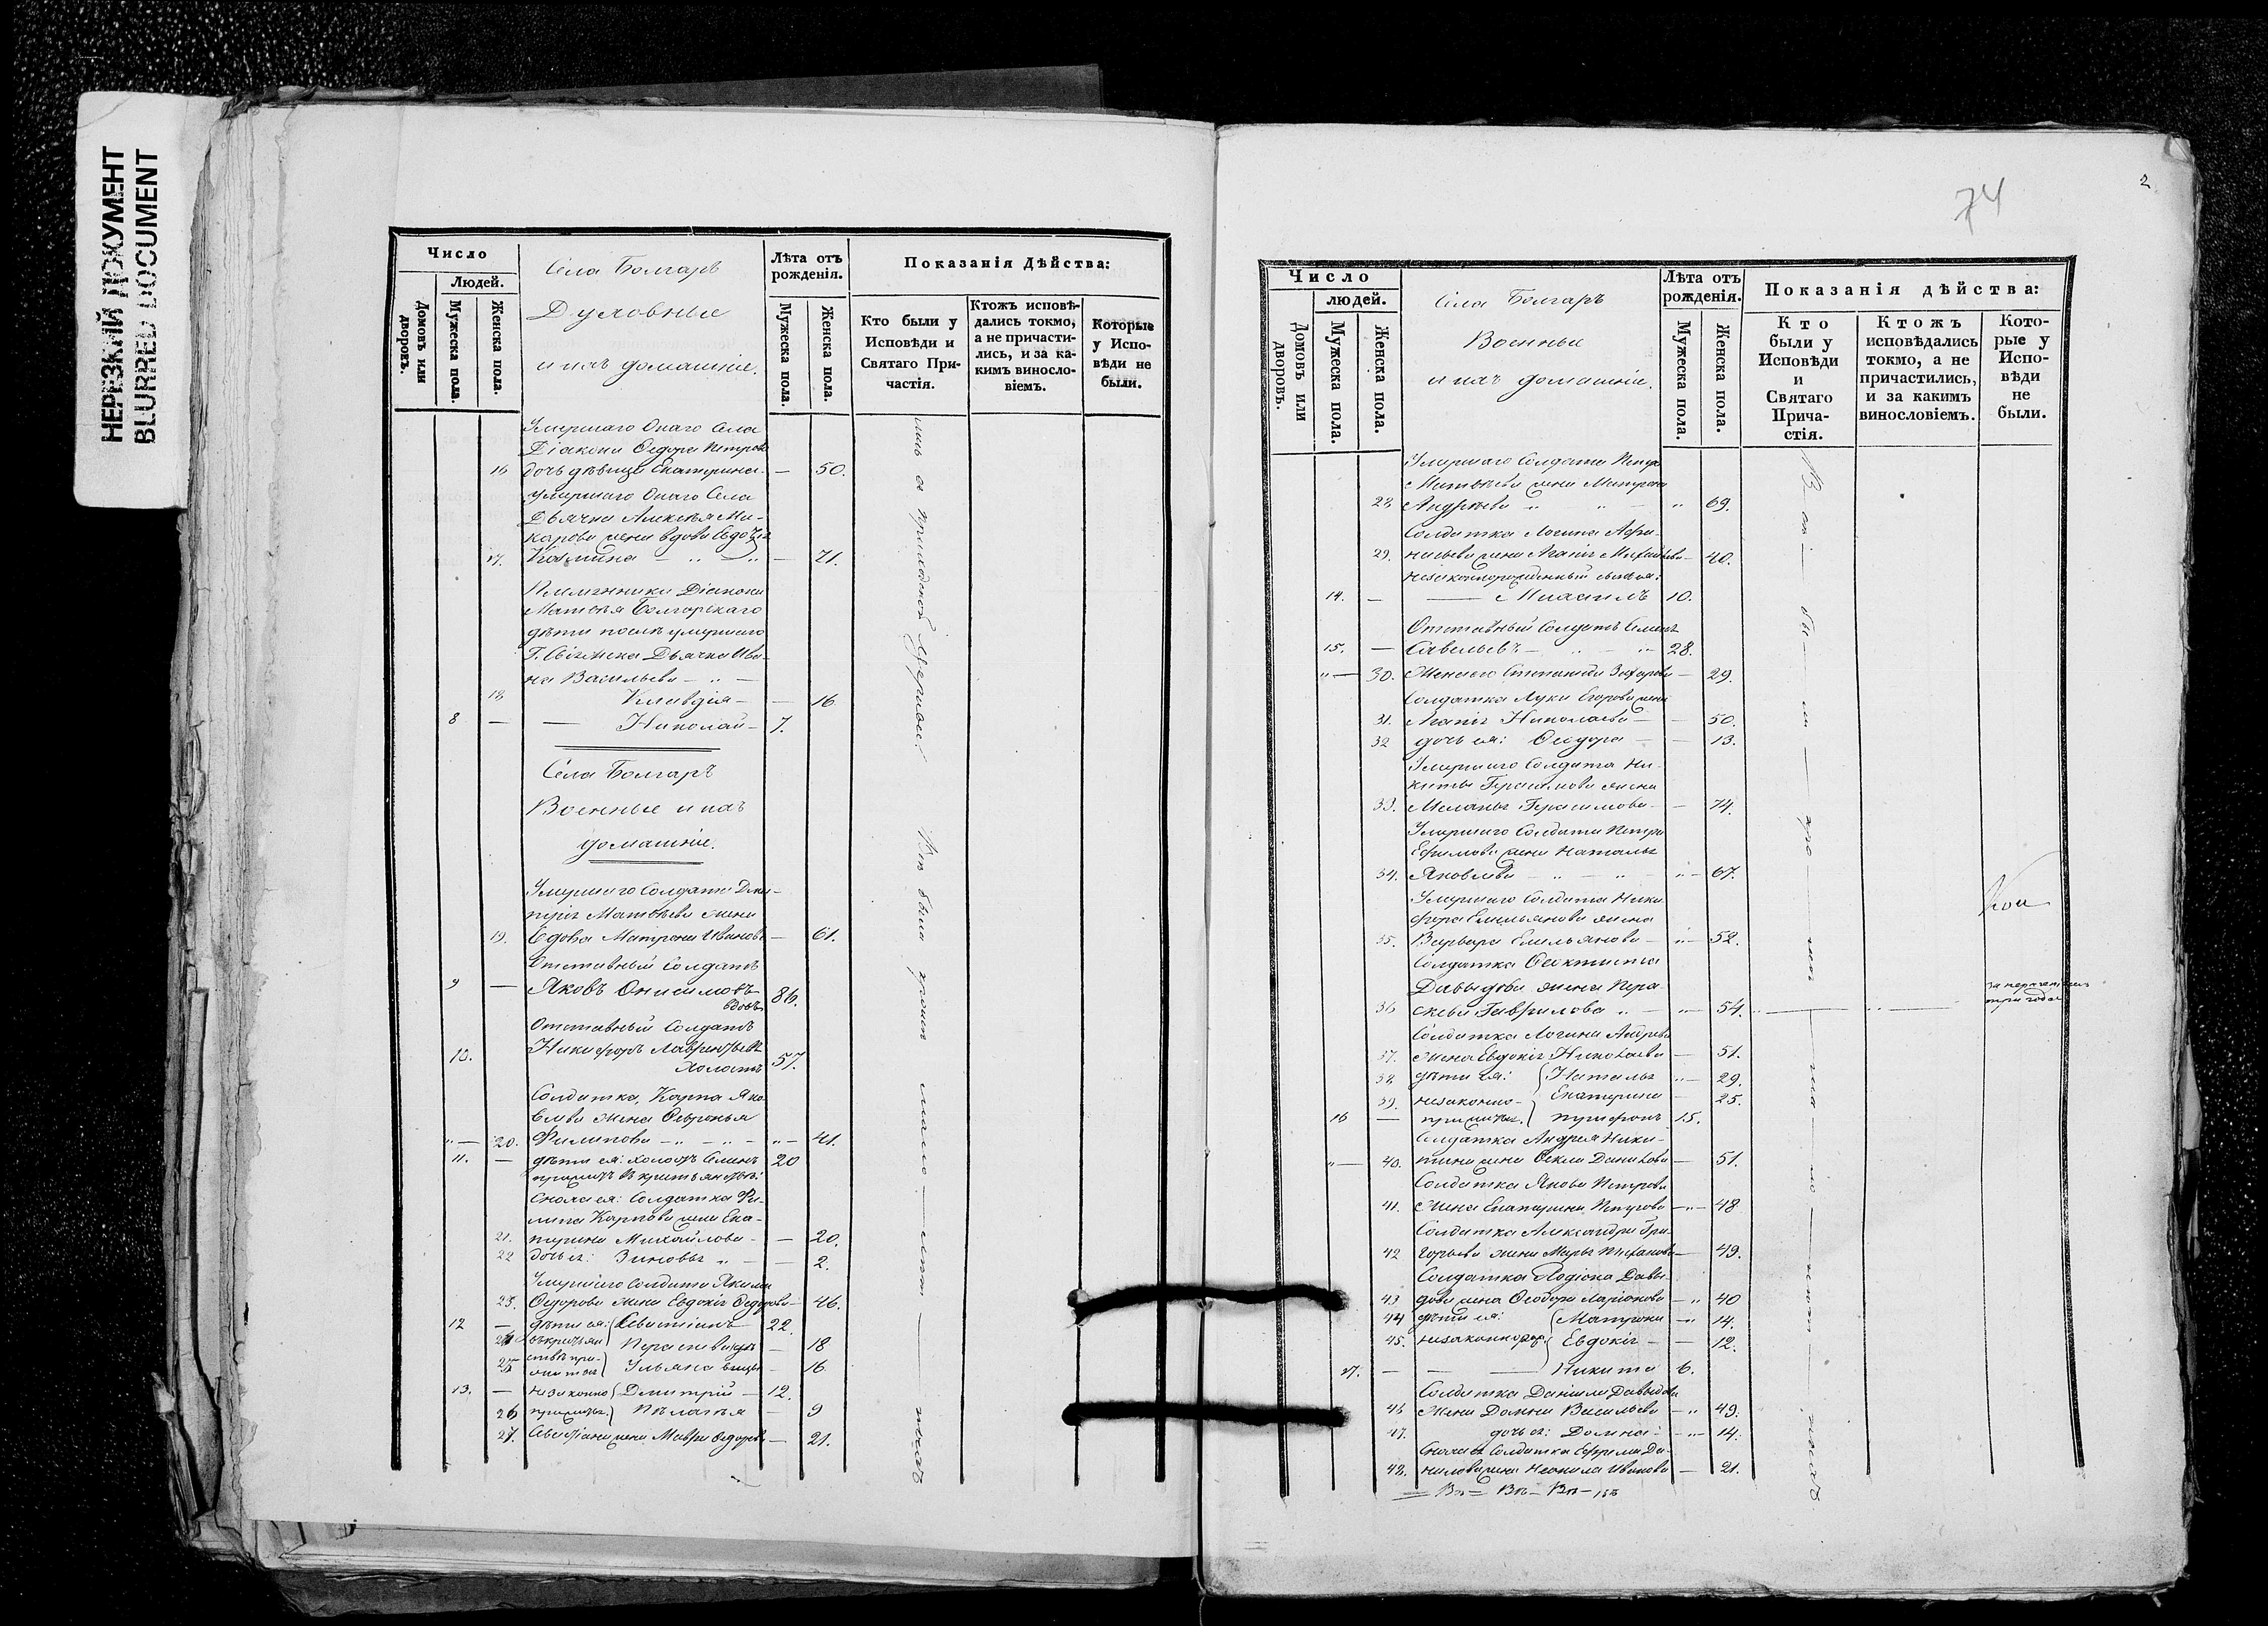 НЕРЕЗКИЙ ДОКУМЕНТ
BLURRED DOCUMENT
Число
Людей.
Домовъ или дворовъ.
Мужеска пола.
Женска пола.
Села Болгаръ
Духовные
и ихъ домашніе.
Лѣта отъ рожденія.
Мужеска пола.
Женска пола.
Показанія Дѣйства:
Кто были у Исповѣди и Святаго Причастія.
Ктожъ исповѣдались токмо, а не причастились, и за какимъ винословіемъ.
Которые у Исповѣди не были.
Умершаго Онаго Села
Діакона Ѳедора Петрова
16 дочь дѣвица Екатерина — 50.
умершаго Онаго Села
Дьячка Алексѣя Ма-
карова жена вдова Евдокія
17. Козмина — 71.
Племянники Діакона
Матвѣя Болгарскаго
дѣти послѣ умершаго
Г. Свіяжска Дьячка Ива-
на Васильева
18 Клавдія — 16
8 — Николай — 7.
Села Болгаръ
Военные и ихъ
домашніе.
Умершаго Солдата Дми-
трія Матвѣева жена
19. Вдова Матрона Иванова — 61.
Отставный Солдатъ
9 — Яковъ Онисимовъ
вдовъ 86.
Отставный Солдатъ
10. Никифоръ Лаврентьевъ
Холостъ 57.
Солдатка, Карпа Яко-
влева жена Ѳевронья
20. Филипова — 41.
11. — дѣти ея: холостъ Семенъ 20
Сноха ея: Солдатка Фи-
липа Карпова жена Ека-
21. терина Михайлова — 20.
22 дочь ея: Зиновья — 2.
Умершаго Солдата Якима
23. Ѳедорова жена Евдокія Ѳедорова — 46.
12 — дѣти ея: Севастіанъ 22.
24 18
25 Ульяна 16
13. — незаконно Дмитрій — 12.
26 Пелагея — 9
27. жена Мавра Ѳедорова — 21.
74
2
Число
людей.
Домовъ или дворовъ.
Мужеска пола.
Женска пола.
Села Болгаръ
Военные
и ихъ домашніе.
Лѣта отъ рожденія.
Мужеска пола.
Женска пола.
Показанія дѣйства:
Кто были у Исповѣди и Святаго Причастія.
Ктожъ исповѣдались токмо, а не причастились, и за какимъ винословіемъ.
Которые у Исповѣди не были.
Умершаго Солдата Петра
Матвѣева жена Матрона
28 Андрѣева — 69.
Солдатка Логина Афа-
29. насьева жена Агапія Михайлова — 40.
незаконнорожденный сынъ ея:
14. — Михаилъ 10.
Отставный Солдатъ Семенъ
15. — Савельевъ — 28.
30. Жена его Степанида Захарова — 29.
Солдатка Луки Егорова жена
31. Агапія Николаева — 50.
32 дочь ея: Ѳедора — 13.
Умершаго Солдата Ни-
киты Герасимова жена
33. Меланья Герасимова — 74.
Умершаго Солдата Петра
Ефимова жена Наталья
34. Яковлева — 67.
Умершаго Солдата Ники-
фора Емельянова жена
35. Варвара Емельянова — 52.
Солдатка Ѳеоктиста
Давыдова жена Пера-
36 скева Гаврилова — 54.
Солдатка Логина Андрева
37. жена Евдокія Николаева — 51.
38 дѣти ея: Наталья — 29.
39. незаконно- Екатерина — 25.
16 — Трифонъ 15.
Солдатка Андрея Ники-
40. тина жена Ѳекла Данилова — 51.
Солдатка Якова Петрова
41. жена Екатерина Петрова — 48
Солдатка Александра Гри-
42 горьева жена Марья — 49.
Солдатка Родіона Давы-
43 дова жена Ѳеодора Ларіонова — 40
44 дѣти ея: Матрона — 14.
45. незаконнорож. Евдокія — 12.
17. — Никита 6.
Солдатка Данила Давыдова
46 жена Домна Васильева — 49.
47. дочь ея: Домна — 14.
Сноха ея Солдатка Ефрема Да-
48. нилова жена Неонила Иванова — 21.